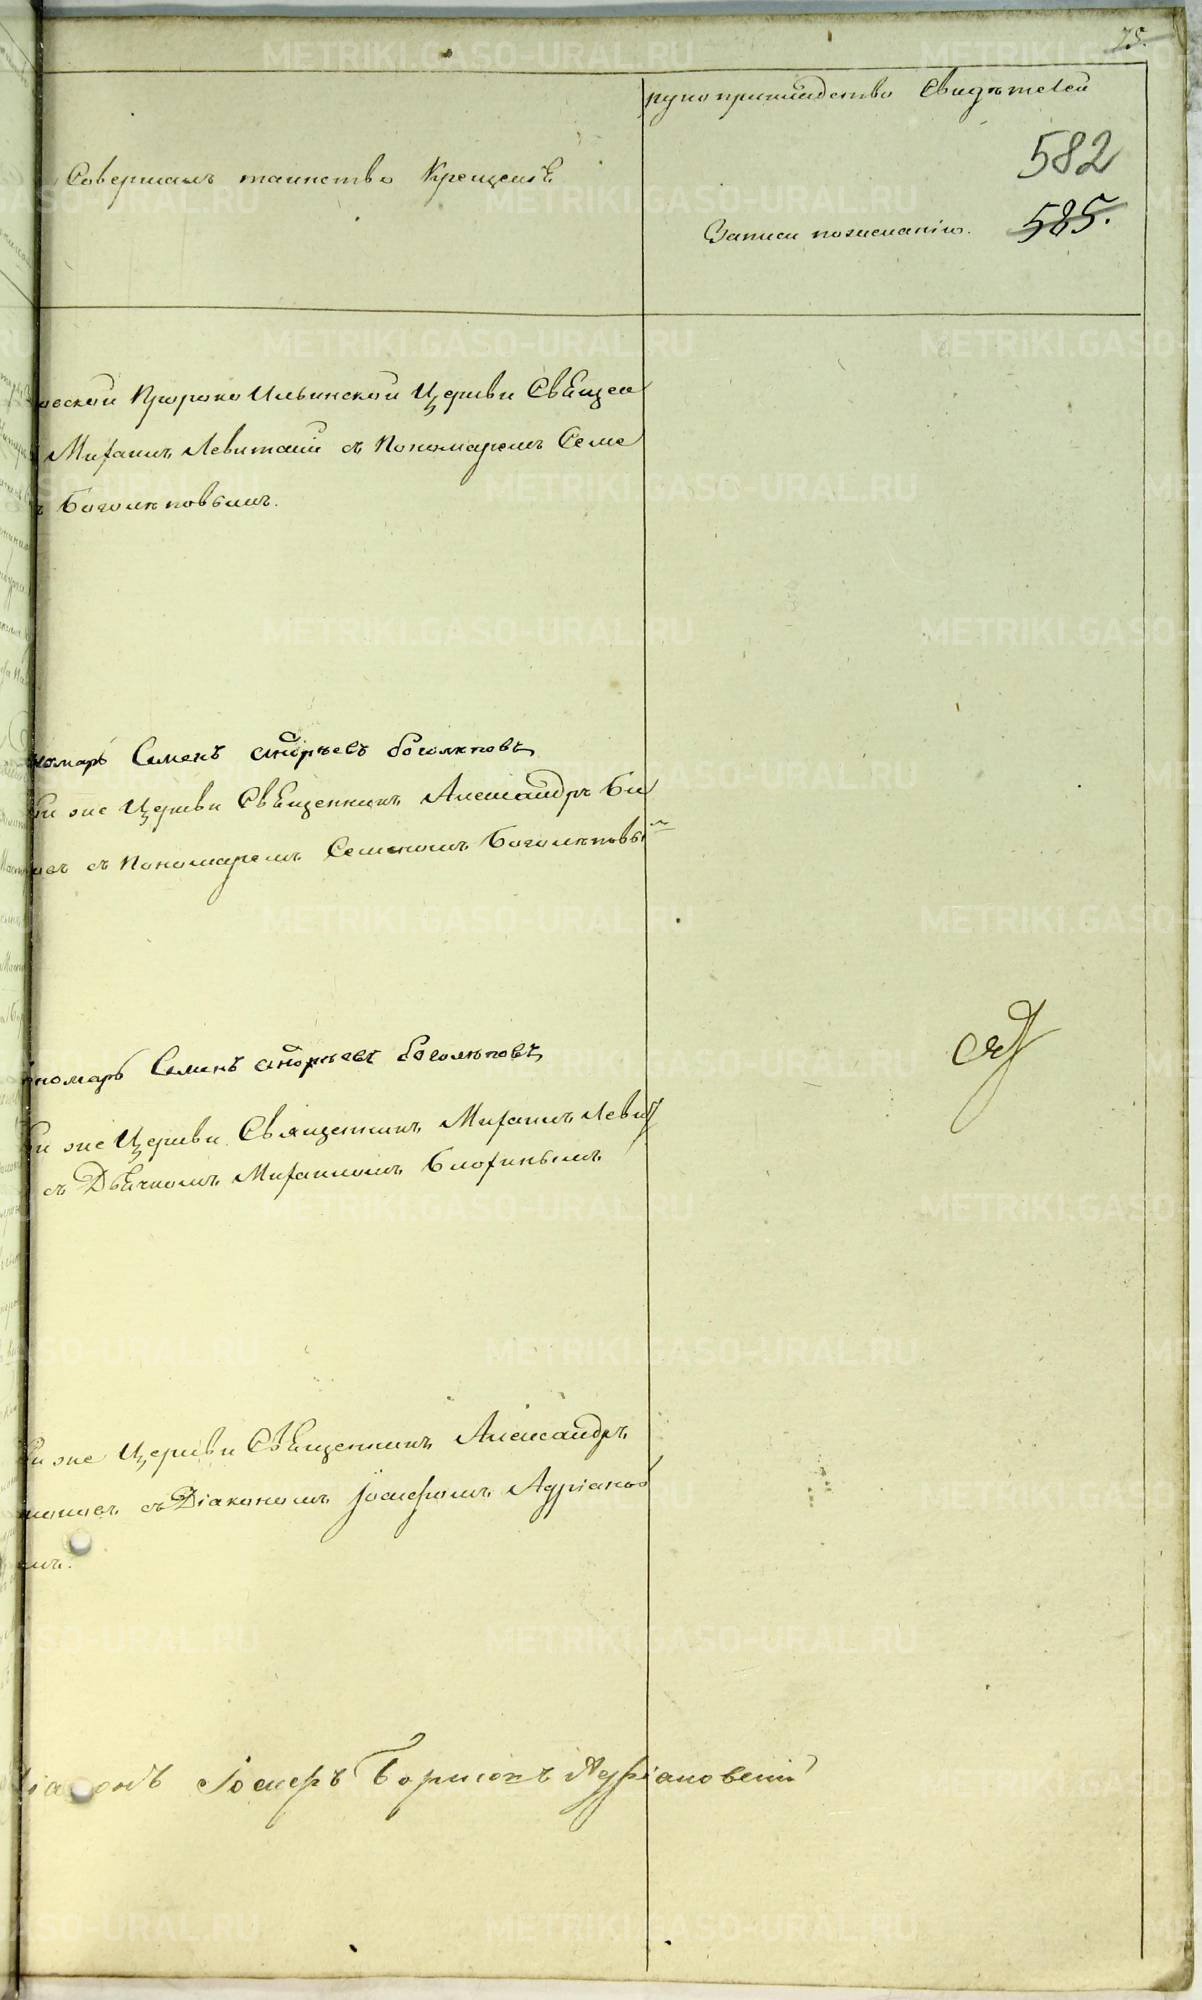 75.
рукоприкладство Свидѣтелей
582
Совершалъ таинство Крещенія
Записи пожеланію. 585.
овской Пророко Ильинской Церкви Священ
Михаилъ Левитскій съ Пономаремъ Семе
ъ Боголѣповымъ.
номарь Семенъ андрѣевъ боголѣповъ
же Церкви Священникъ Александръ Би
съ Пономаремъ Семеномъ Боголѣповы
ономарь Семенъ андрѣевъ боголѣповъ
же Церкви Священникъ Михаилъ Левит
съ Дьячкомъ Михаиломъ
же Церкви Священникъ Александръ
съ Діакономъ Іосифомъ Адріанов
імъ.
Діаконъ Іосифъ Борисовъ Адріановскій
METRIKI.GASO-URAL.RU